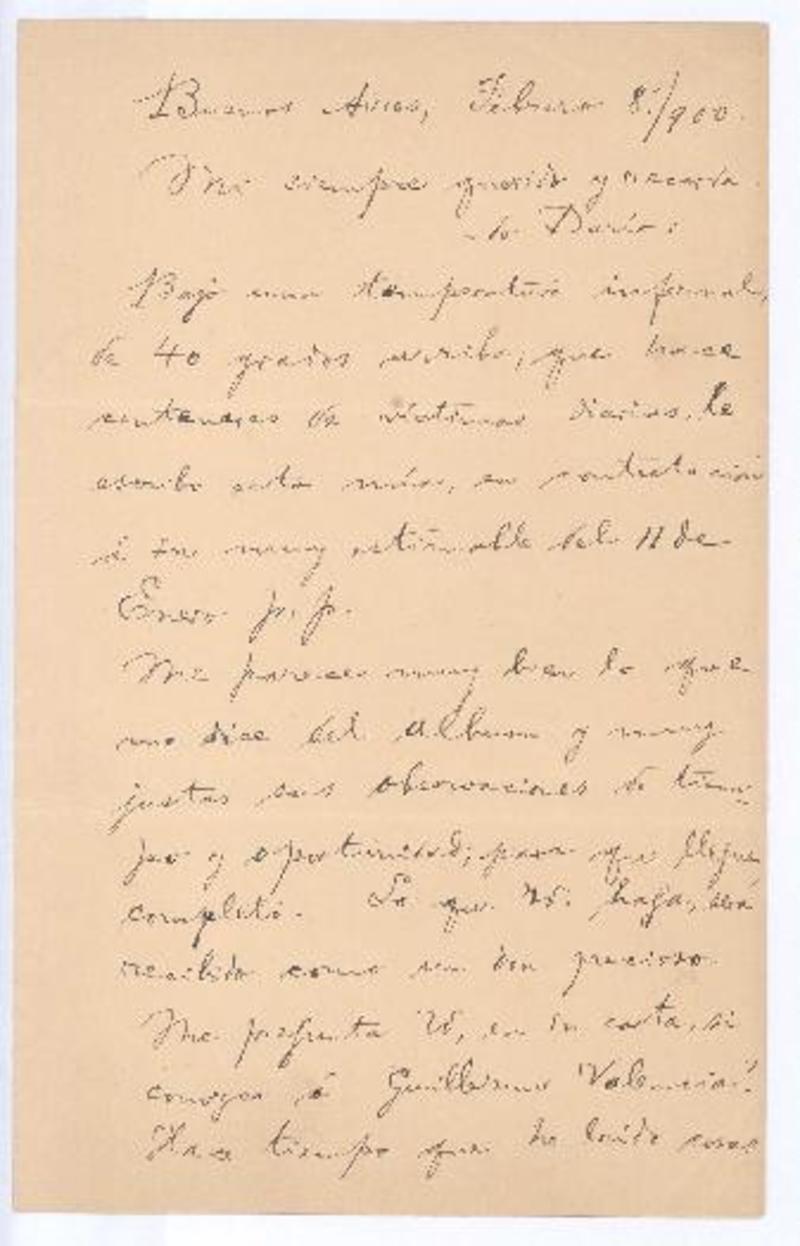 Buenos Aires, Febrero 8/900.
Mi siempre querido y recorda-
do Darío:
Bajo una temperatura infernal,
de 40 grados arriba, que hace
centenares de víctimas diarias, le
escribo esta mía, en contestación
á su muy estimable del 11 de
Enero p. p.
Me parece muy bien lo que
me dice del album y muy
justas sus observaciones de tiem-
po y oportunidad, para que llegue
completo. Lo que Ud. haga, será
recibido como un don precioso.
Me pregunta Ud, en su carta, si
conozco á Guillermo Valencia.
Hace tiempo que he leído cosas